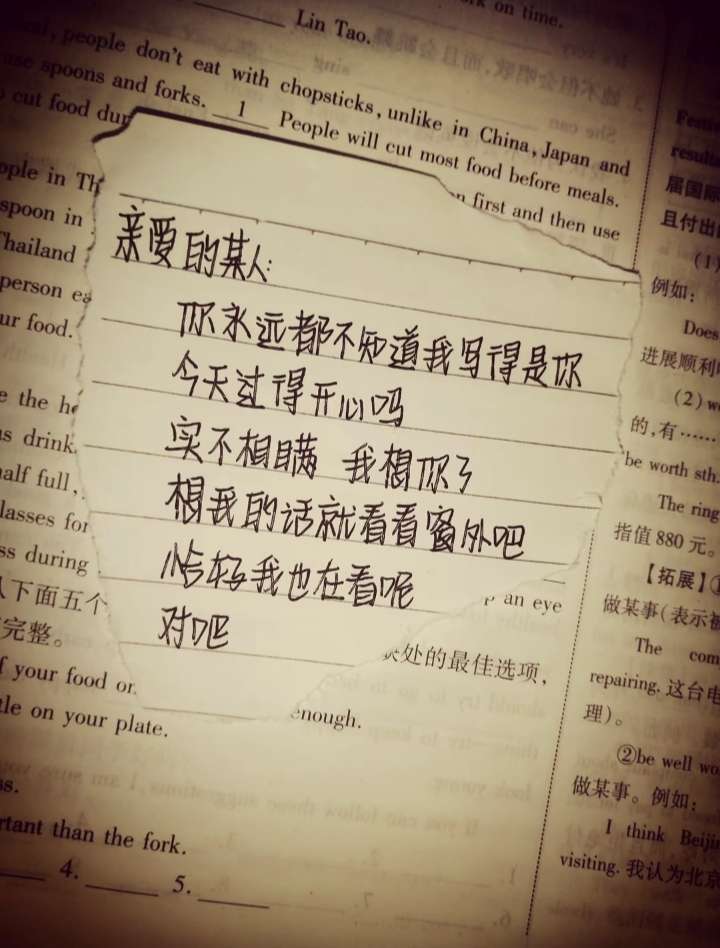 k on time.
Lin Tao.
, people don't eat with chopsticks, unlike in China, Japan and
use spoons and forks. 1 People will cut most food before meals.
cut food dur
n first and then use
ople in Th
spoon in
Thailand
person ea
ur food.
亲爱的某人:
你永远都不知道我写得是你
今天过得开心吗
实不相瞒 我想你了
想我的话就看看窗外吧
恰好我也在看呢
对吧
e the he
s drink
half full,
lasses for
ss during
p an eye
下面五个
缺处的最佳选项,
完整。
f your food or
enough.
tle on your plate.
ns.
rtant than the fork.
4. 5.
result
届国际
且付出
(1)
例如:
Does
进展顺利
(2) w
的,有……
be worth sth.
The ring
指值880元。
【拓展】①
做某事(表示被
The com
repairing. 这台电
理)。
②be well wo
做某事。例如:
I think Beijin
visiting. 我认为北京